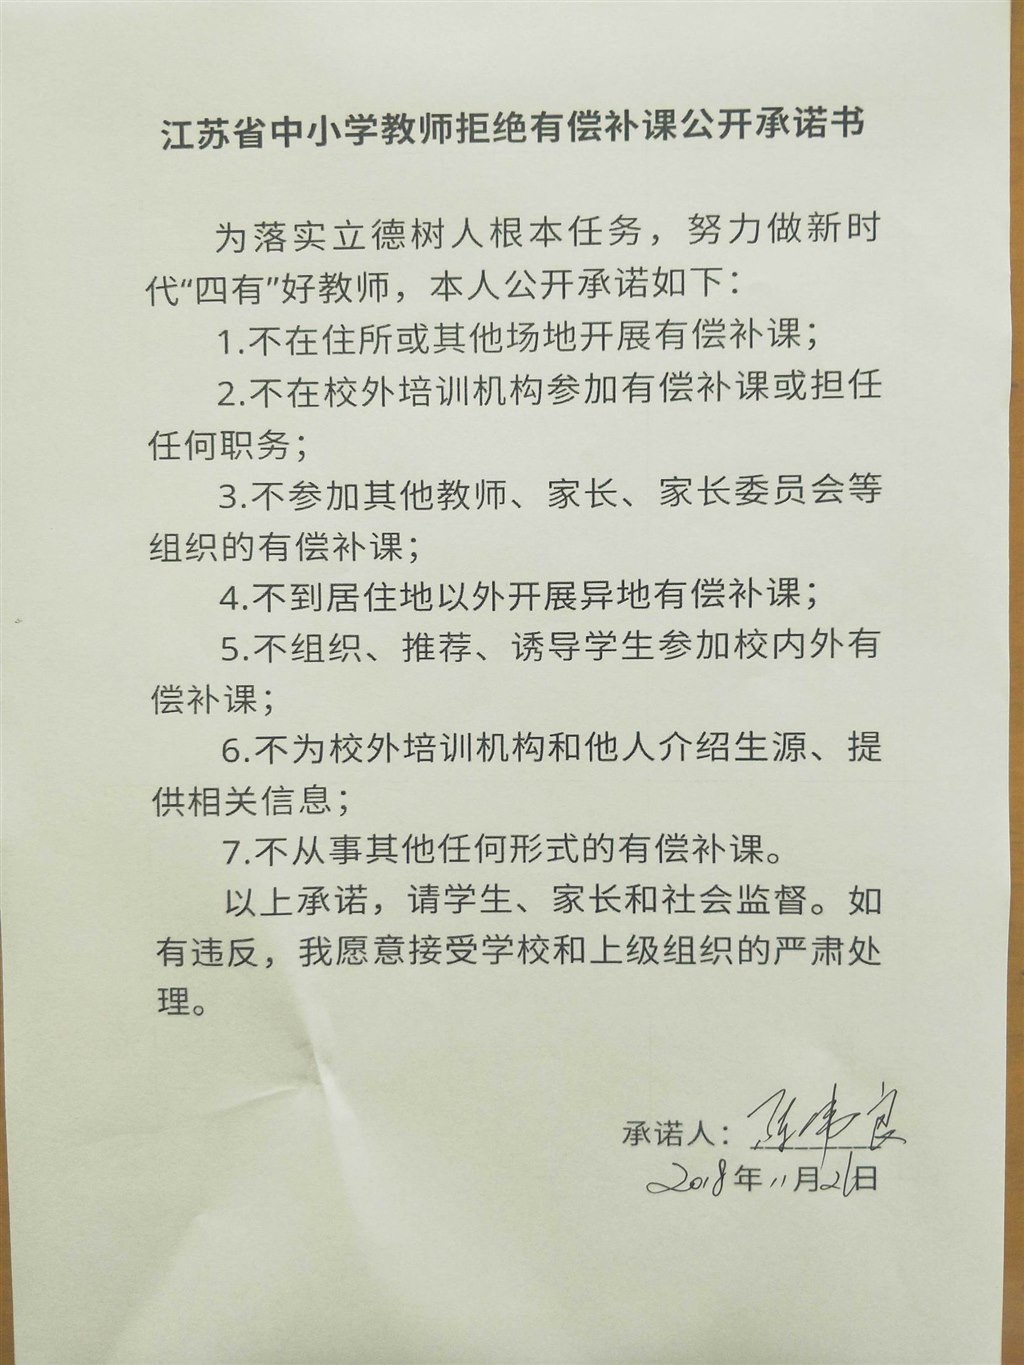 江苏省中小学教师拒绝有偿补课公开承诺书
为落实立德树人根本任务，努力做新时
代“四有”好教师，本人公开承诺如下：
1.不在住所或其他场地开展有偿补课；
2.不在校外培训机构参加有偿补课或担任
任何职务；
3.不参加其他教师、家长、家长委员会等
组织的有偿补课；
4.不到居住地以外开展异地有偿补课；
5.不组织、推荐、诱导学生参加校内外有
偿补课；
6.不为校外培训机构和他人介绍生源、提
供相关信息；
7.不从事其他任何形式的有偿补课。
以上承诺，请学生、家长和社会监督。如
有违反，我愿意接受学校和上级组织的严肃处
理。
承诺人：陈伟良
2018年11月21日